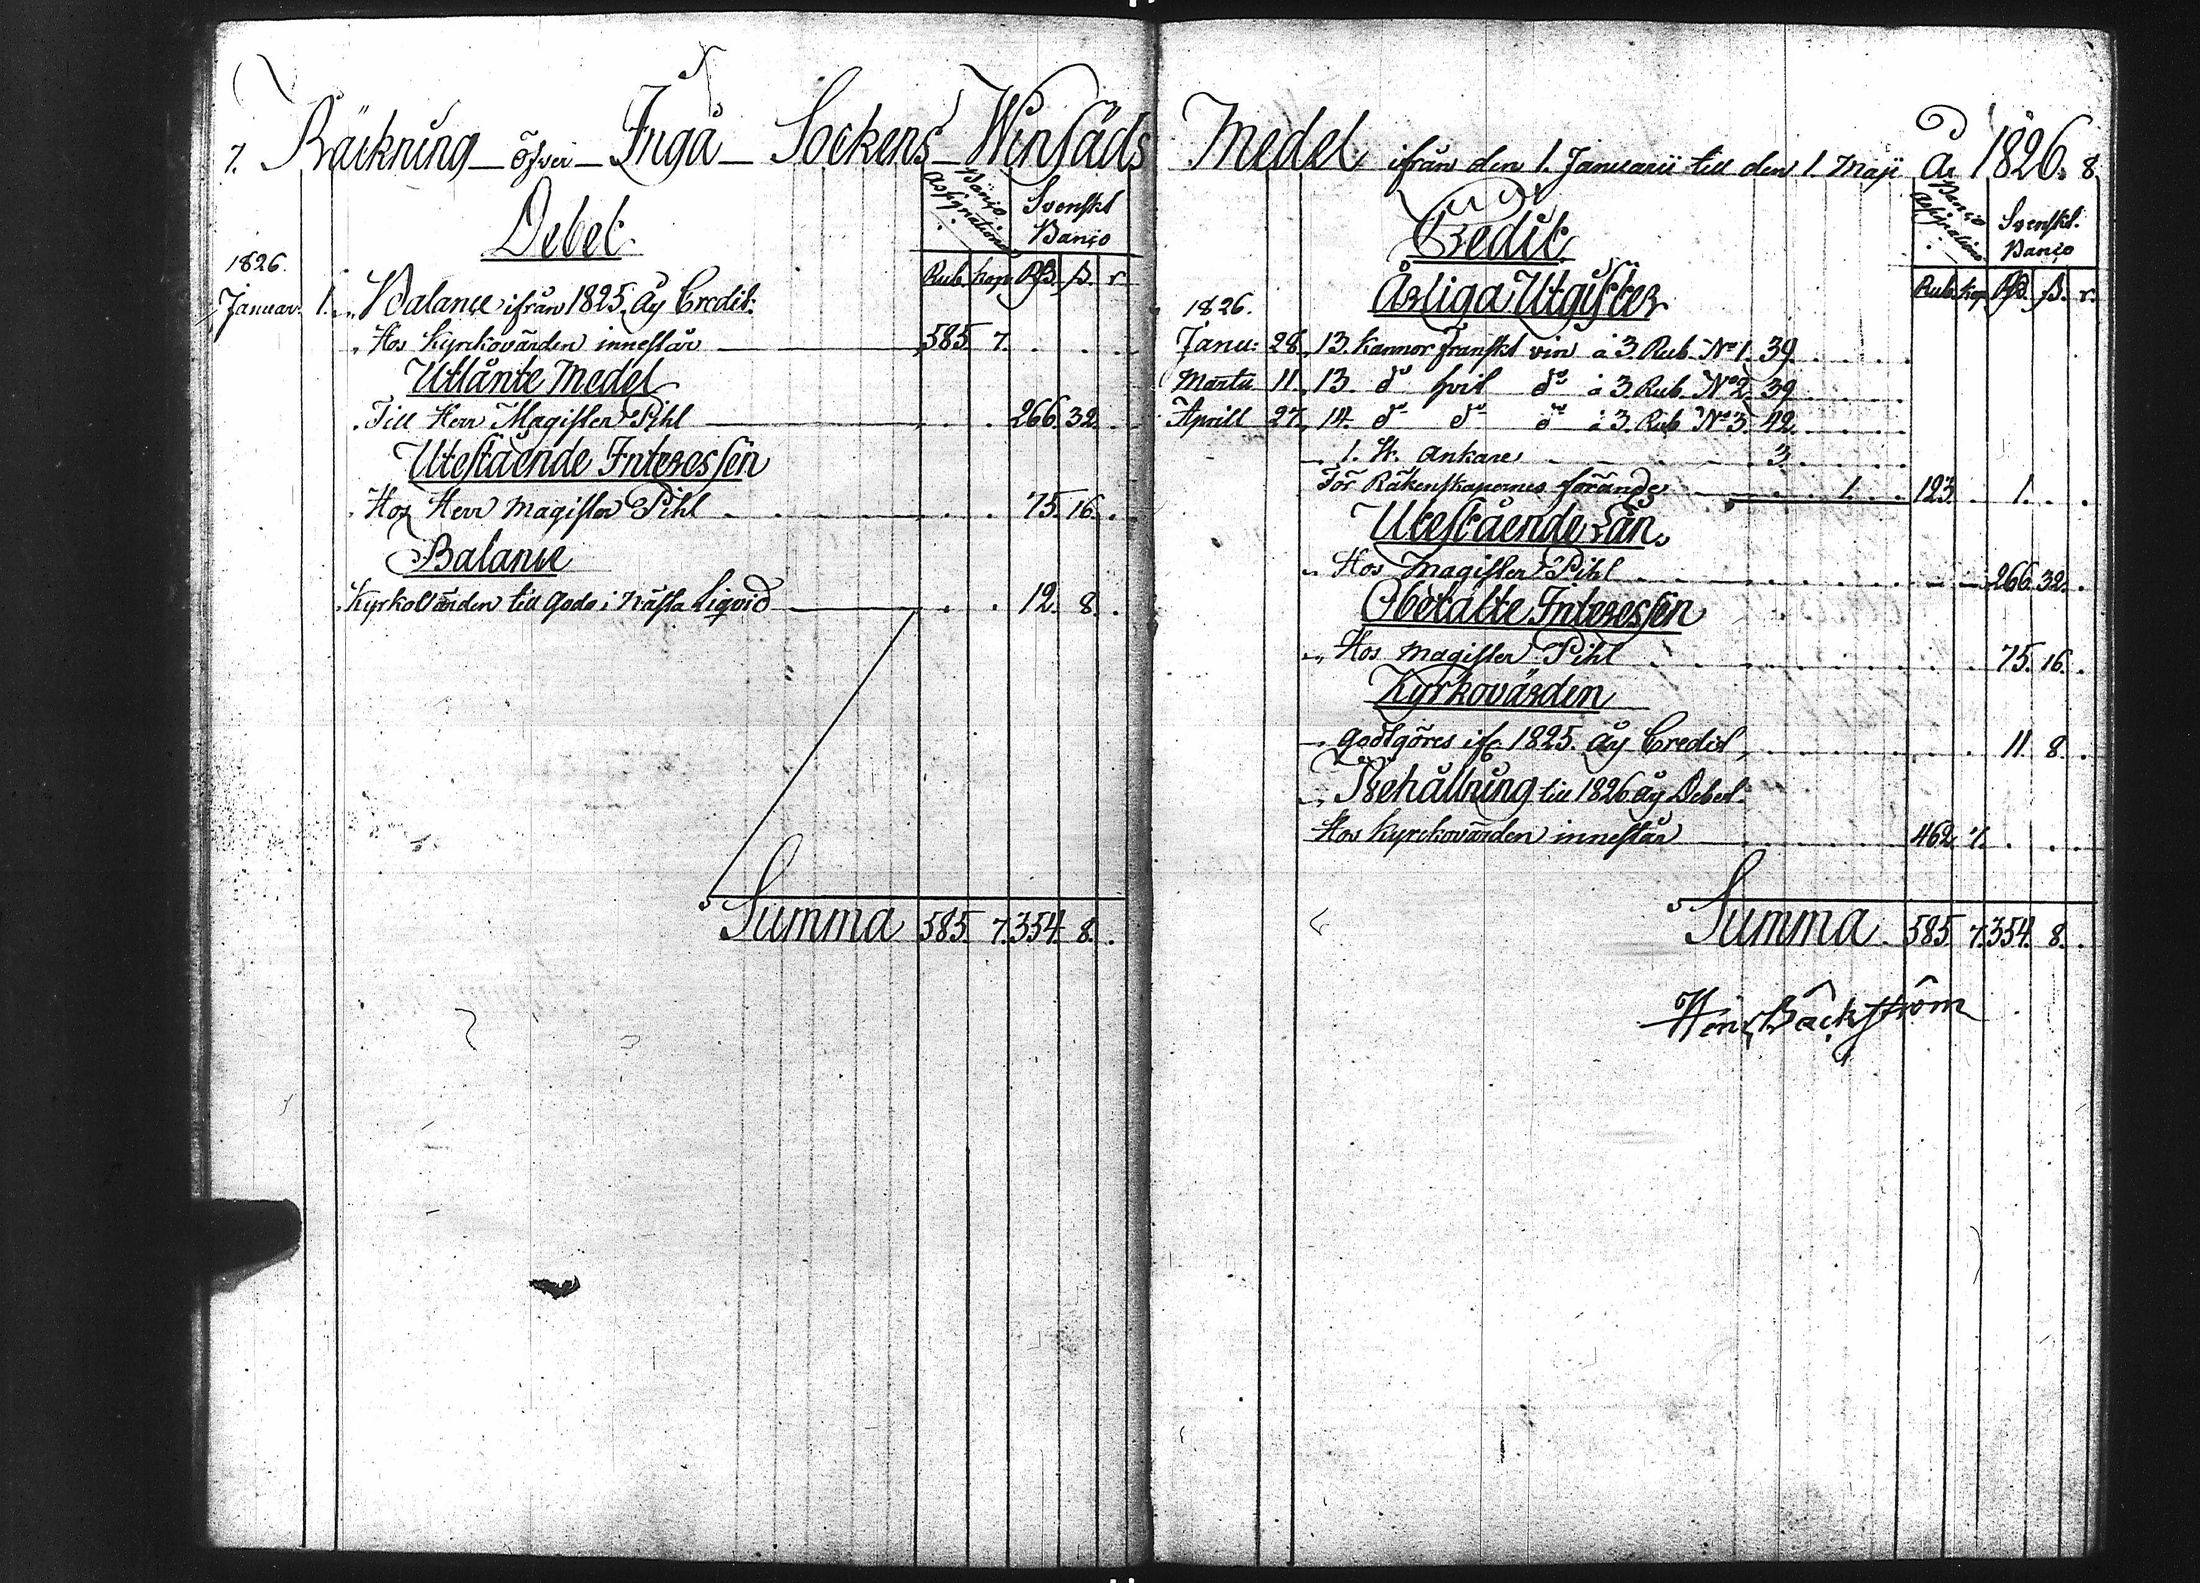 7. Räckning öfver Ingå Sockens Winsäds
Banco Assignationer
Svenskt Banco
Debet
Rub. kop. Rd. ß. r.
1826.
Januar. 1. Balance ifrån 1825 åy Credit:
Hos Kyrckovärden innestår 585. 7.
Utlånte Medel
Till Herr Magister Pihl 266. 32.
Utestående Interessen
Hos Herr Magister Pihl 75. 16.
Balance
Kyrkovärden till godo i nästa Liqvid 12. 8.
Summa 585. 7. 354. 8.
Medel ifrån den 1. Januarii till den 1. Maji År 1826. 8.
Banco Assignationer
Svenskt. Banco
Credit
Rub. kop. Rd. ß. r.
Årliga Utgifter
1826.
Janu: 28. 13. kannor franskt vin à 3. Rub. No 1. 39.
Martii 11. 13. do hvit do à 3 Rub. No 2. 39.
Aprill 27. 14. do do do à 3. Rub No 3. 42.
1. st. Ankare 3.
För Räkenskapernes förande 1. 123. 1.
Utestående Lån.
Hos Magister Pihl 266. 32.
Obetalte Interessen
Hos Magister Pihl 75. 16.
Kyrkovärden
godtgöres ifr. 1825. åy Credit 11. 8.
Behållning till 1826 åy Debet.
Hos Kyrckovärden innestår 462. 7.
Summa 585. 7. 354. 8.
Henr. Bäckström